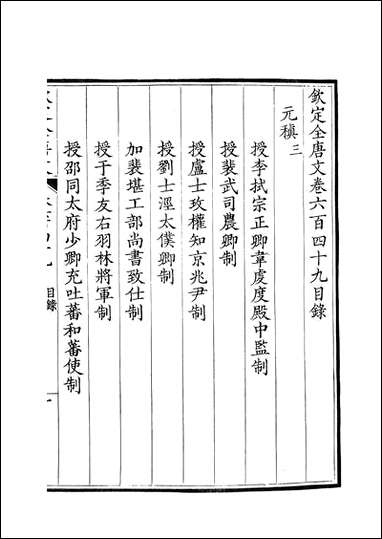 欽定全唐文卷六百四十九目錄
元稹三
授李拭宗正卿韋虔度殿中監制
授裴武司農卿制
授盧士玫權知京兆尹制
授劉士涇太僕卿制
加裴堪工部尚書致仕制
授于季友右羽林將軍制
授邵同太府少卿充吐蕃和蕃使制
目錄